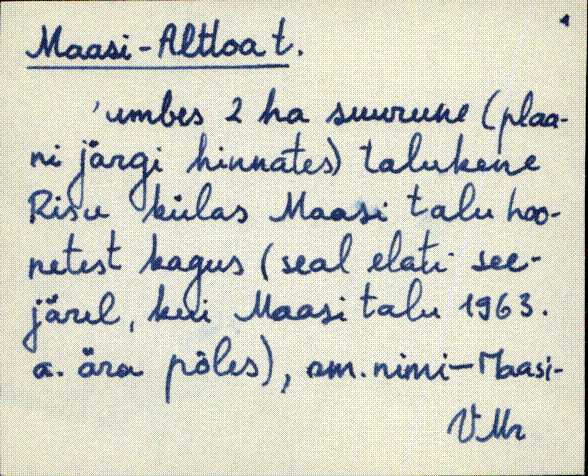 Maasi-Alttoa t.
'umbes 2 ha suurune (plaa-
ni järgi hinnates) talukene
Risu külas Maasi talu hoo-
netest kagus (seal elati see-
järel, kui Maasi talu 1963.
a. ära põles), am. nimi - Maasi-
VMr